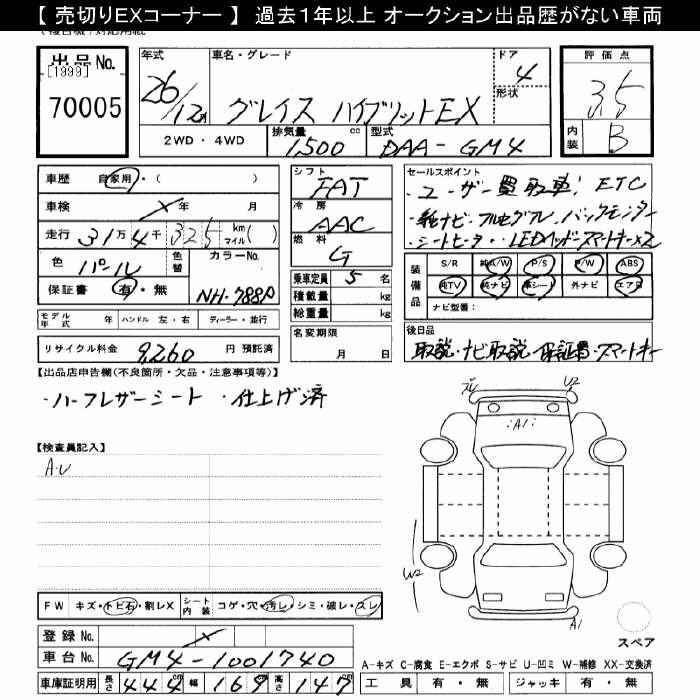 【 売切りEXコーナー 】 過去1年以上 オークション出品歴がない車両
出品No.
[1999]
70005
年式 車名・グレード ドア
26/12月 グレイス ハイブリットEX 4
形状
評価点
3.5
内装 B
2WD・4WD 排気量 1,500 cc 型式 DAA-GM4
車歴 自家用・( )
車検 × 年 月
走行 31万4千325 km マイル( )
色 パール 色替 カラーNo.
保証書 有・無 NH-788P
モデル年式 年 ハンドル 左・右 ディーラー・並行
リサイクル料金 9,260 円 預託済
シフト FAT
冷房 AAC
燃料 G
乗車定員 5 名
積載量 kg
総重量 kg
名変期限
月 日
セールスポイント
・ユーザー買取車! ETC
・純ナビ・フルセグTV・バックモニター
・シートヒーター・LEDヘッド・スマートキー×2
装備品 S/R 純A/W P/S P/W ABS
純TV 純ナビ 革シート 外ナビ エアB
ナビ型番:
後日品
取説・ナビ取説・保証書・スマートキー
【出品店申告欄(不良箇所・欠品・注意事項等)】
・ハーフレザーシート ・仕上げ済
【検査員記入】
A.U
U2
A1
W2
A1
FW キズ・トビ石・割レX シート内装 コゲ・穴・汚レ・シミ・破レ・スレ
登録No. ×
車台No. GM4-1001740
車庫証明用 長さ 444cm 幅 169cm 高さ 147cm
スペア
A-キズ C-腐食 E-エクボ S-サビ U-凹ミ W-補修 XX-交換済
工具 有・無 ジャッキ 有・無